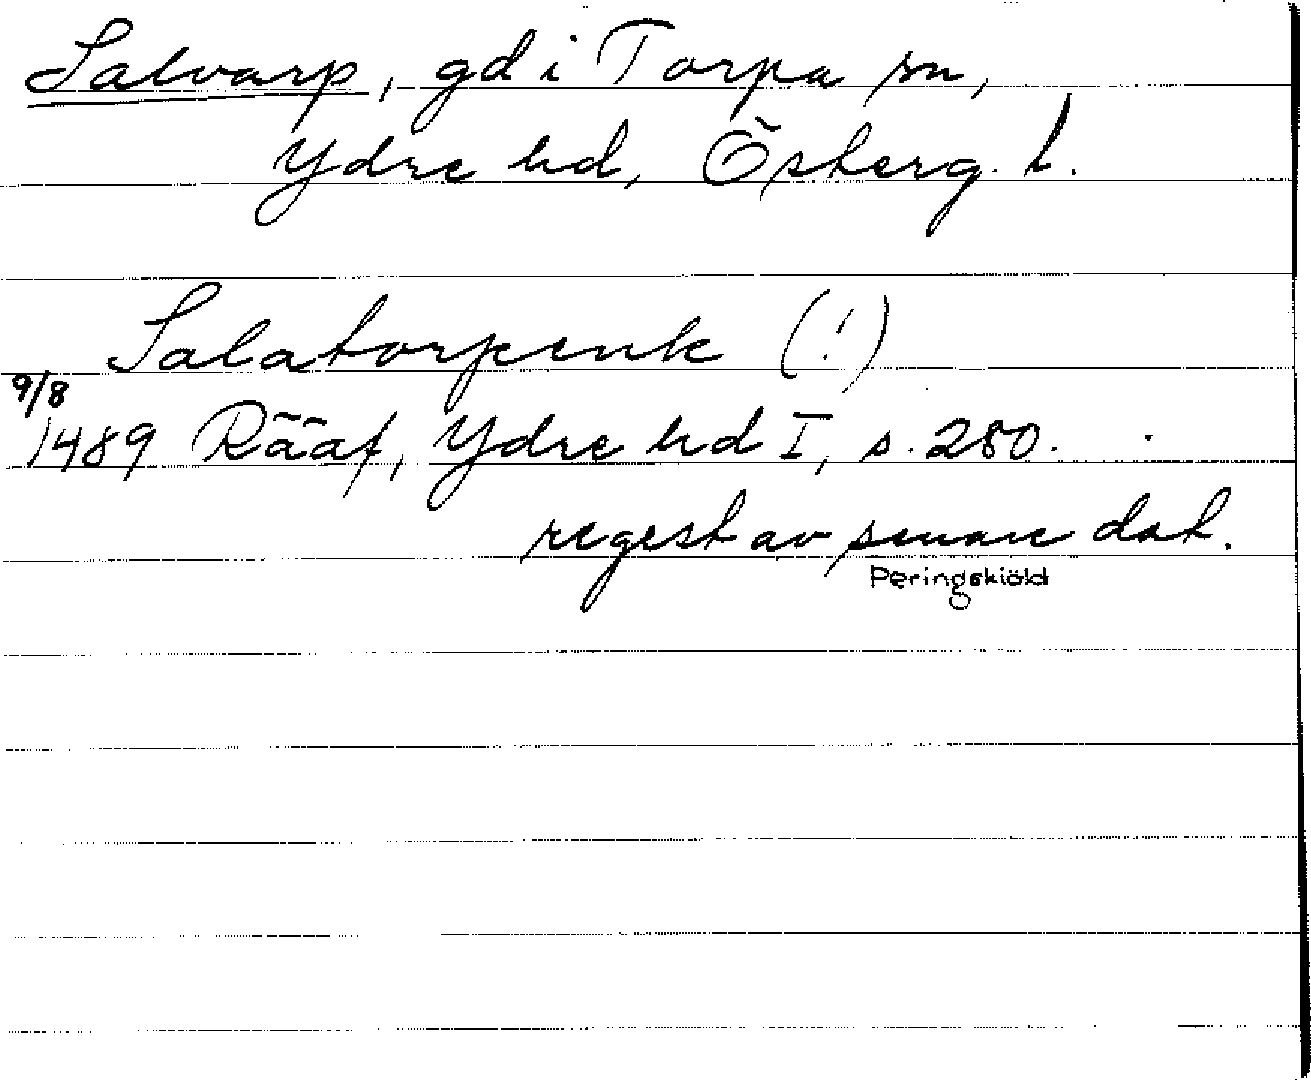 Salvarp, gd i Torpa sn,
Ydre hd, Österg. l.
Salatorpenk (!)
9/8
1489 Rääf, Ydre hd I, s. 280.
regest av senare dat.
Peringskiöld